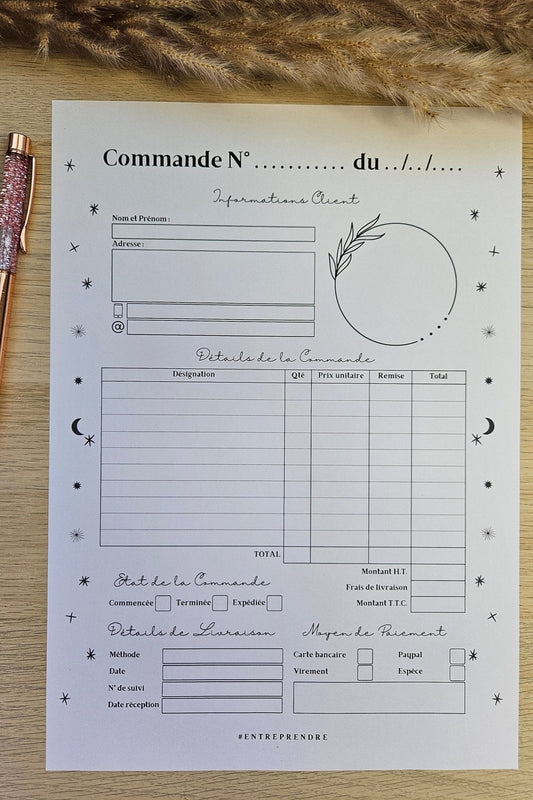 Commande N° ........... du ../../....
Informations Client
Nom et Prénom :
Adresse :
@
Détails de la Commande
Désignation Qté Prix unitaire Remise Total
TOTAL
Montant H.T.
Frais de livraison
Montant T.T.C.
Etat de la Commande
Commencée Terminée Expédiée
Détails de Livraison
Méthode
Date
N° de suivi
Date réception
Moyen de Paiement
Carte bancaire Paypal
Virement Espèce
#ENTREPRENDRE